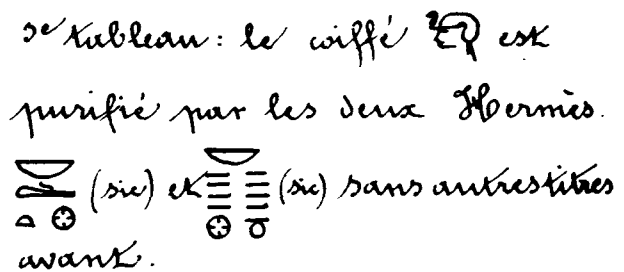 3e tableau: le coiffé est
purifié par les deux Hermès.
(sic) et (sic) sans autres titres
avant.